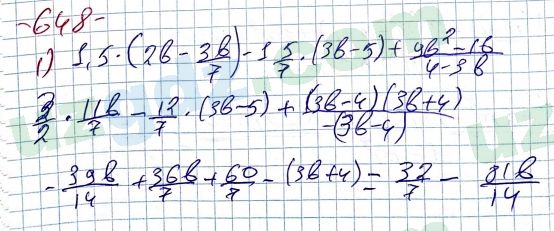 -648-
1) 1,5·(2b - 3b/7) - 1 5/7·(3b-5) + 9b²-16/4-3b
3/2 · 11b/7 - 12/7 · (3b-5) + (3b-4)(3b+4)/-(3b-4)
- 39b/14 + 36b/7 + 60/7 - (3b+4) = 32/7 - 81b/14